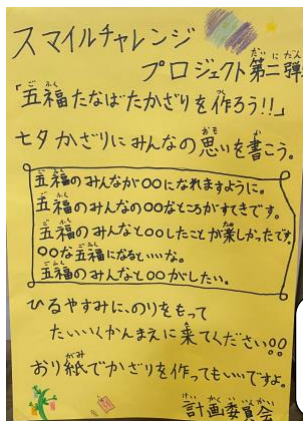 スマイルチャレンジ
プロジェクト第二弾
「五福たなばたかざりを作ろう!!」
七夕かざりにみんなの思いを書こう。
五福のみんなが○○になれますように。
五福のみんなの○○なところがすてきです。
五福のみんなと○○したことが楽しかったです。
○○な五福になるといいな。
五福のみんなと○○がしたい。
ひるやすみに、のりをもって
たいいくかんまえに来てください!!
おり紙でかざりを作ってもいいですよ。
計画委員会